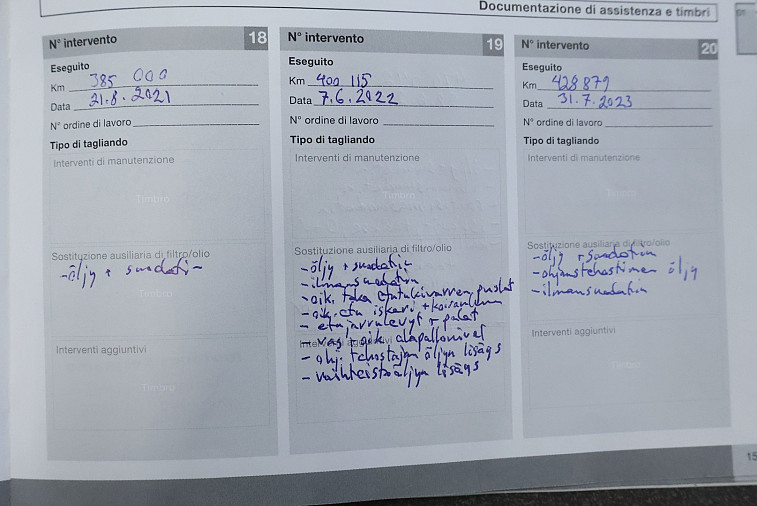 Documentazione di assistenza e timbri
N° intervento 18
Eseguito
Km 385 000
Data 21.8.2021
N° ordine di lavoro
Tipo di tagliando
Interventi di manutenzione
Timbro
Sostituzione ausiliaria di filtro/olio
-öljy + suodatin
Timbro
Interventi aggiuntivi
Timbro
N° intervento 19
Eseguito
Km 400 115
Data 7.6.2022
N° ordine di lavoro
Tipo di tagliando
Interventi di manutenzione
Timbro
Sostituzione ausiliaria di filtro/olio
-öljy + suodatin
-ilmansuodatin
-oik. taka etutukivarren puslat
-oik. etu iskari +
-etujarrulevyt + palat
-vas + oik. alapallonivel
Interventi aggiuntivi
-ohj. tehostajan öljyn lisäys
-vaihteistoöljyn lisäys
N° intervento 20
Eseguito
Km 428 879
Data 31.7.2023
N° ordine di lavoro
Tipo di tagliando
Interventi di manutenzione
Timbro
Sostituzione ausiliaria di filtro/olio
-öljy + suodatin
-ohjaustehostimen öljy
-ilmansuodatin
Interventi aggiuntivi
Timbro
15